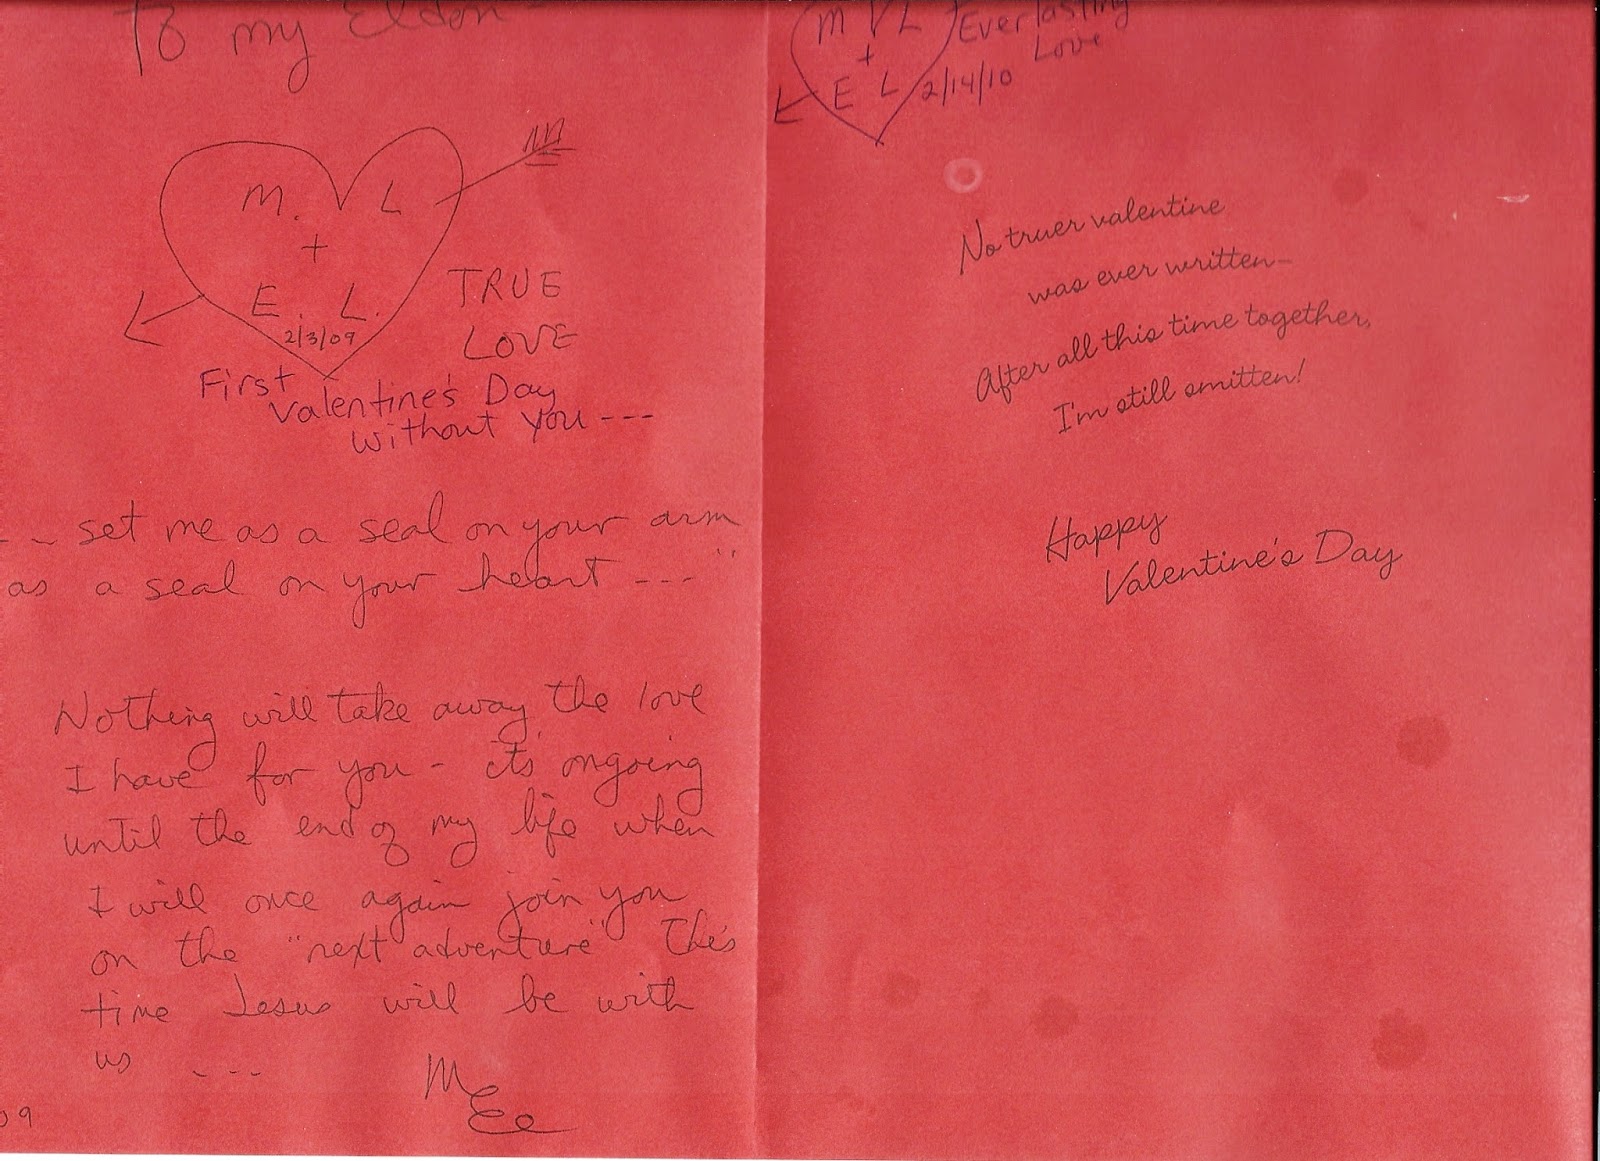 To my Eldon
M. L
+
E. L.
2/3/09
TRUE
LOVE
First
Valentine's Day
without you ---
-- set me as a seal on your arm
as a seal on your heart ---"
Nothing will take away the love
I have for you - it's ongoing
until the end of my life when
I will once again join you
on the "next adventure" This
time Jesus will be with
us ---
09
M L
+
E L
Everlasting
Love
2/14/10
No truer valentine
was ever written—
After all this time together,
I'm still smitten!
Happy
Valentine's Day